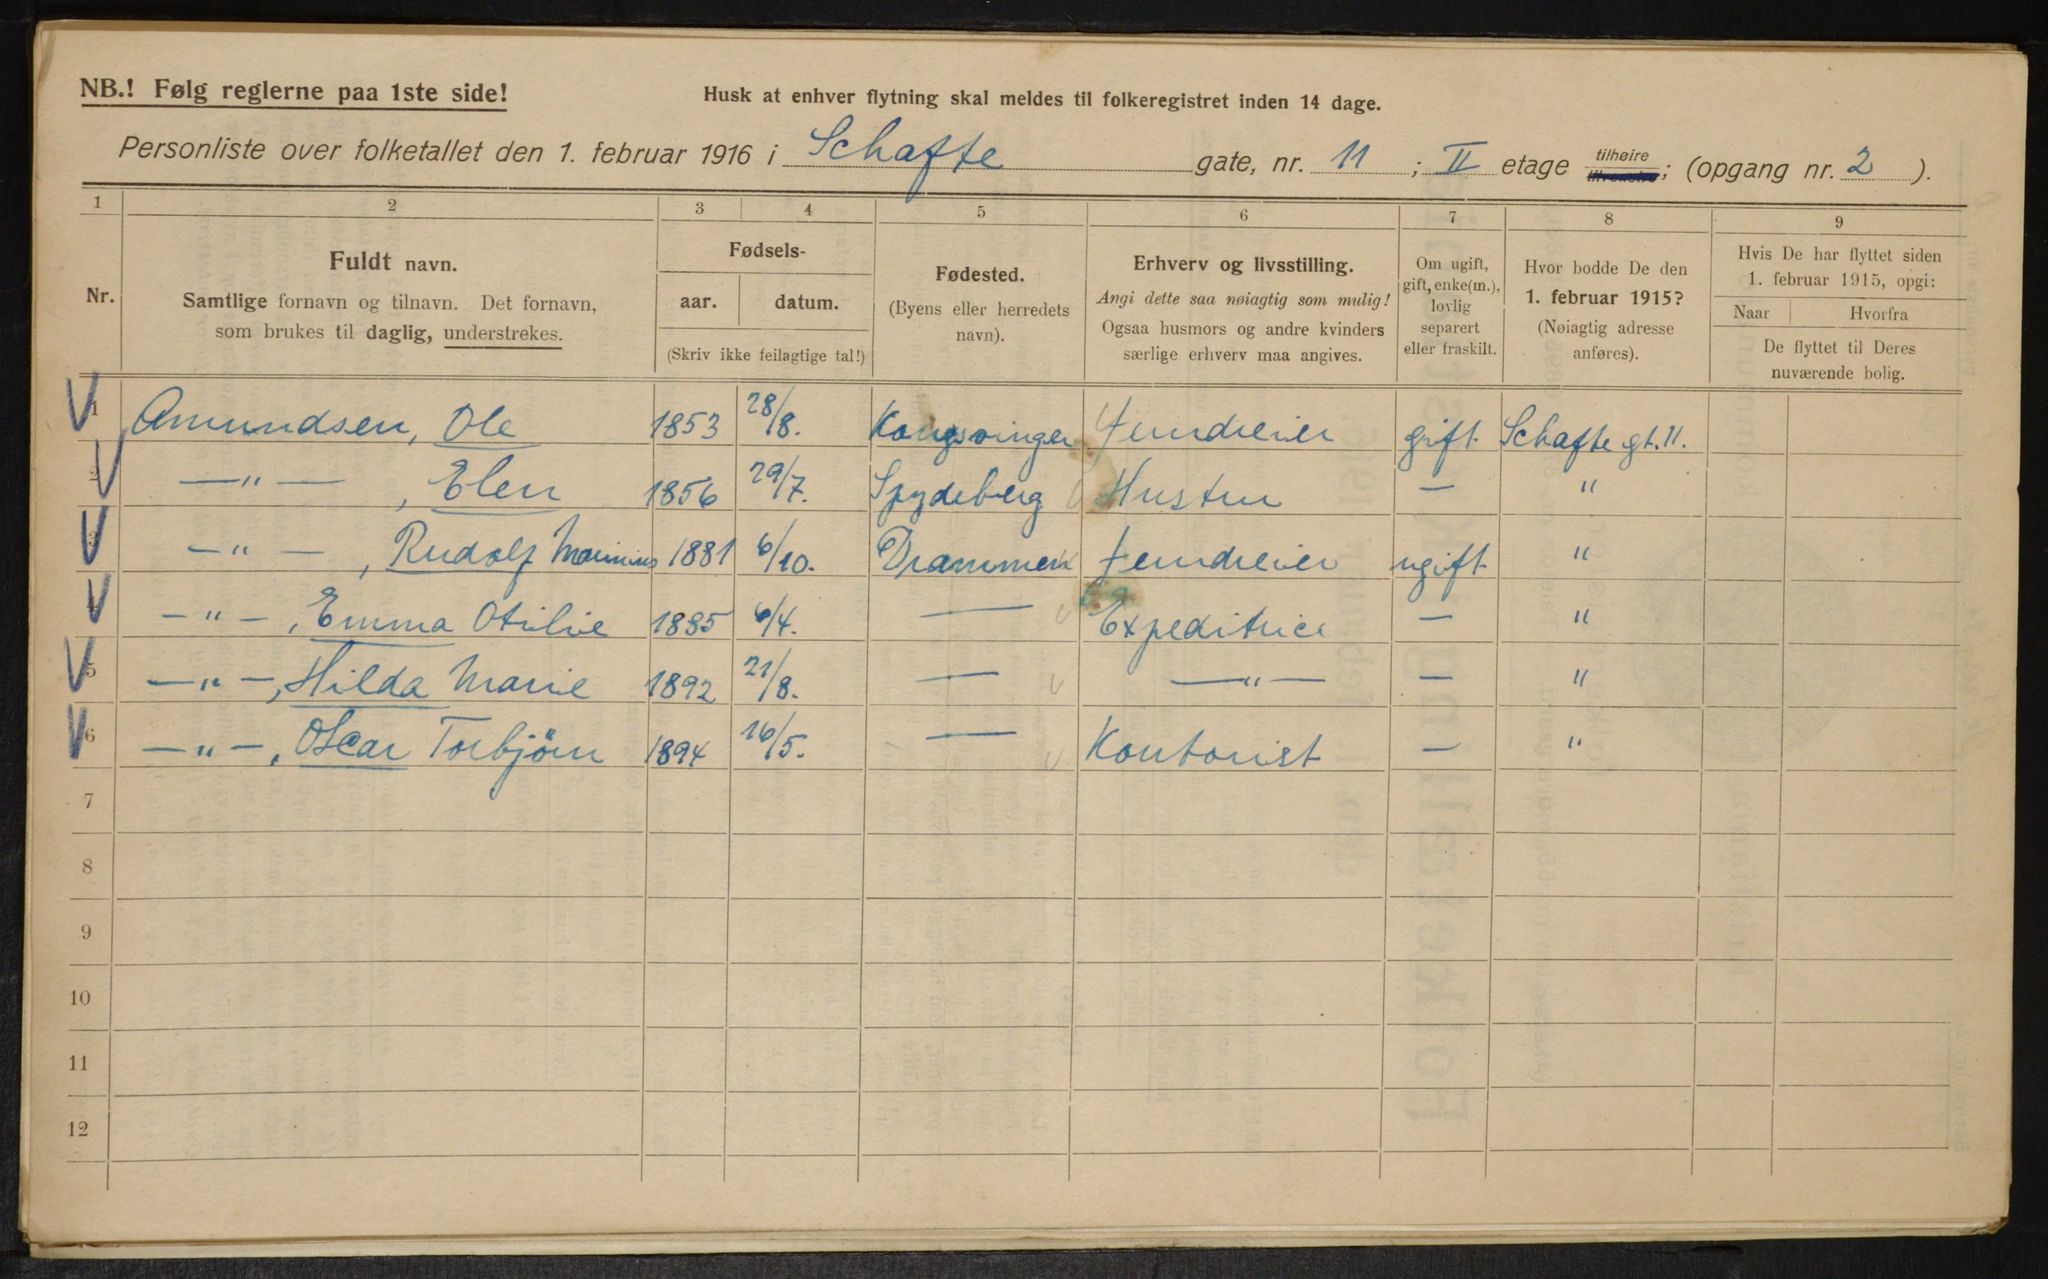 NB.! Følg reglerne paa 1ste side!
Husk at enhver flytning skal meldes til folkeregistret inden 14 dage.
Personliste over folketallet den 1. februar 1916 i Schafte gate, nr. 11 ; II etage tilhøire tilvenstre; (opgang nr. 2 ).
1 2 3 4 5 6 7 8 9
Nr.
Fuldt navn.
Samtlige fornavn og tilnavn. Det fornavn,
som brukes til daglig, understrekes.
Fødsels-
aar. datum.
(Skriv ikke feilagtige tal!)
Fødested.
(Byens eller herredets
navn).
Erhverv og livsstilling.
Angi dette saa nøiagtig som mulig!
Ogsaa husmors og andre kvinders
særlige erhverv maa angives.
Om ugift,
gift, enke(m.),
lovlig
separert
eller fraskilt.
Hvor bodde De den
1. februar 1915?
(Nøiagtig adresse
anføres).
Hvis De har flyttet siden
1. februar 1915, opgi:
Naar Hvorfra
De flyttet til Deres
nuværende bolig.
1 Amundsen, Ole 1853 28/8. Kongsvinger gift Schafte gt. 11.
2 —"— , Elen 1856 29/7. Spydeberg Hustru — "
3 —"— , Rudolf Marinius 1881 6/10. Drammen ugift "
4 —"—, Emma Otilie 1885 6/4. — Expeditrice — "
5 —"—, Hilda Marie 1892 21/8. — —"— — "
6 —"—, Oscar Torbjörn 1894 16/5. — Kontorist — "
7
8
9
10
11
12